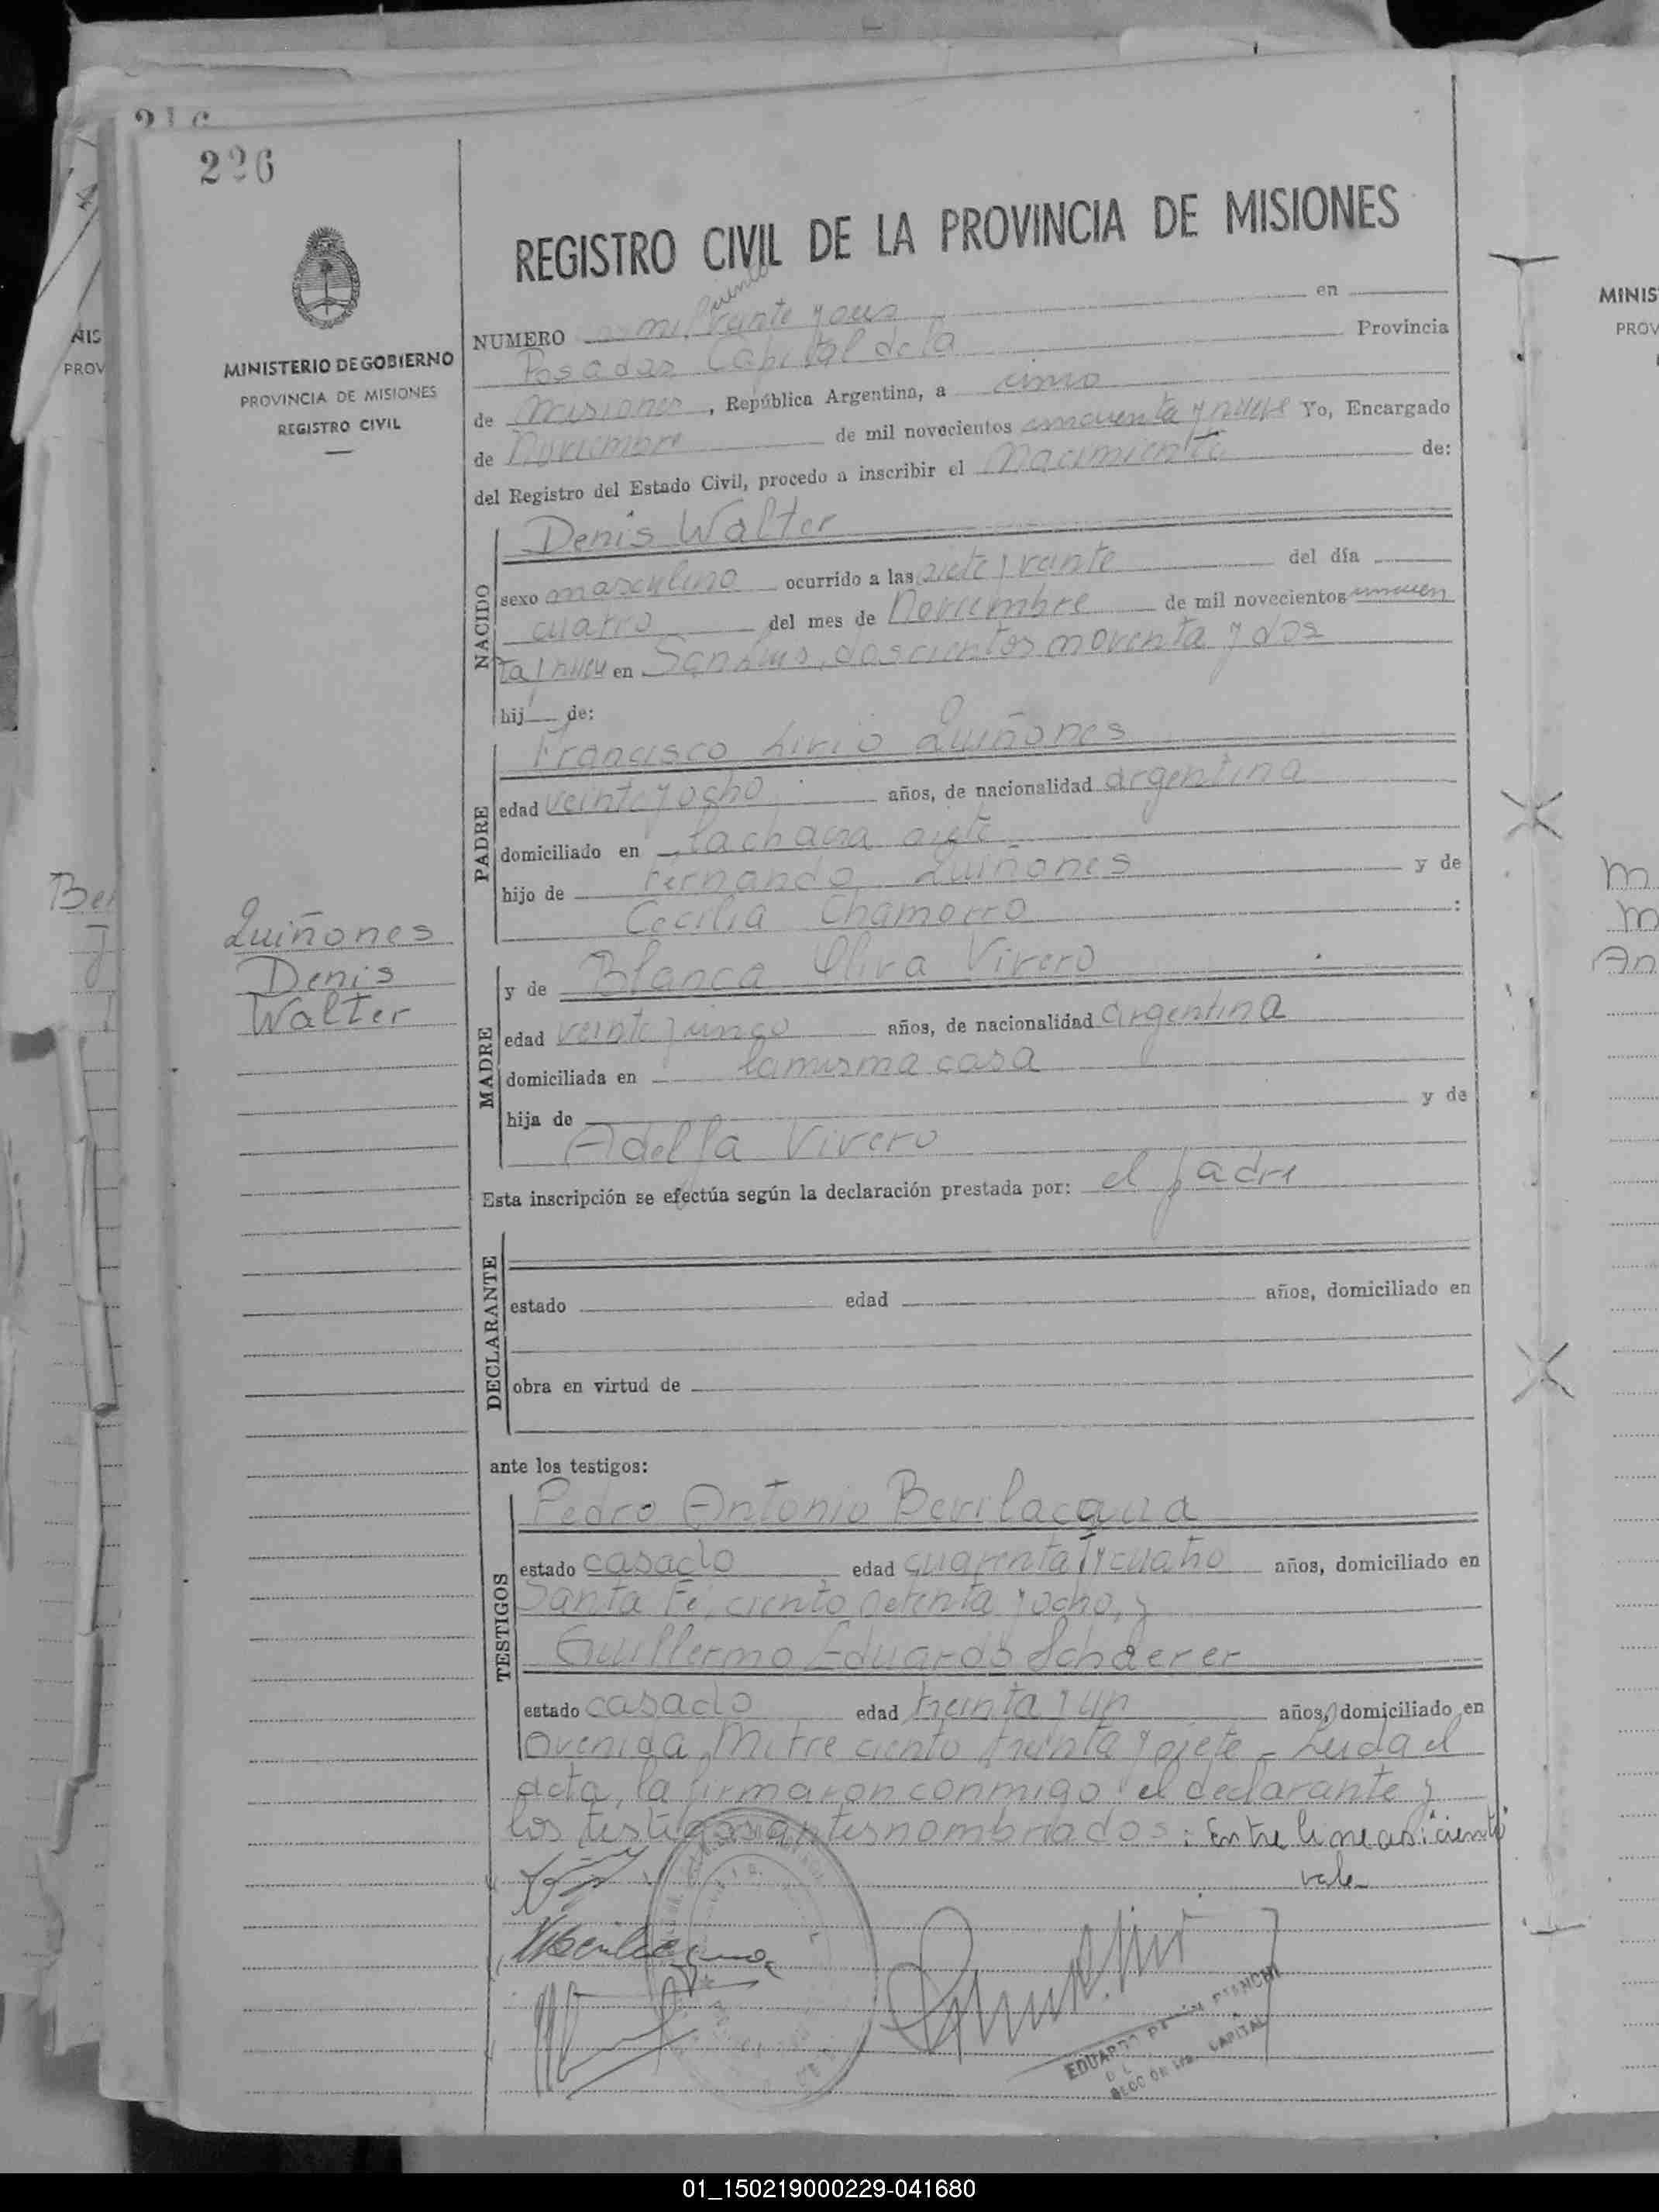 226
MINISTERIO DE GOBIERNO
PROVINCIA DE MISIONES
REGISTRO CIVIL
Quiñones
Denis
Walter
REGISTRO CIVIL DE LA PROVINCIA DE MISIONES
ciento
NUMERO mil veinte y en
Posadas Capital de la Provincia
de Misiones, República Argentina, a cinco
de Noviembre de mil novecientos cincuenta y nueve Yo, Encargado
del Registro del Estado Civil, procedo a inscribir el Nacimiento de:
NACIDO
Denis Walter
sexo masculino ocurrido a las siete y veinte del día
cuatro del mes de Noviembre de mil novecientos cincuen
ta y nueve en San Luis, doscientos noventa y dos
hij de:
PADRE
Francisco Livio Quiñones
edad veinte y ocho años, de nacionalidad argentina
domiciliado en la chacra siete
hijo de Fernando Quiñones y de
Cecilia Chamorro :
MADRE
y de Blanca Oliva Vivero
edad veinte y cinco años, de nacionalidad argentina
domiciliada en la misma casa
hija de y de
Adelfa Vivero
Esta inscripción se efectúa según la declaración prestada por: el padre
DECLARANTE
estado edad años, domiciliado en
obra en virtud de
ante los testigos:
TESTIGOS
Pedro Antonio Bevilacqua
estado casado edad cuarenta y cuatro años, domiciliado en
Santa Fé, ciento setenta y ocho, y
Guillermo Eduardo Schaerer
estado casado edad treinta y un años, domiciliado en
Avenida Mitre ciento treinta y siete - Leida el
acta, la firmaron conmigo el declarante y
los testigos antes nombrados: Entre lineas: ciento
vale
EDUARDO BIANCHI
CAPITAL
01_150219000229-041680